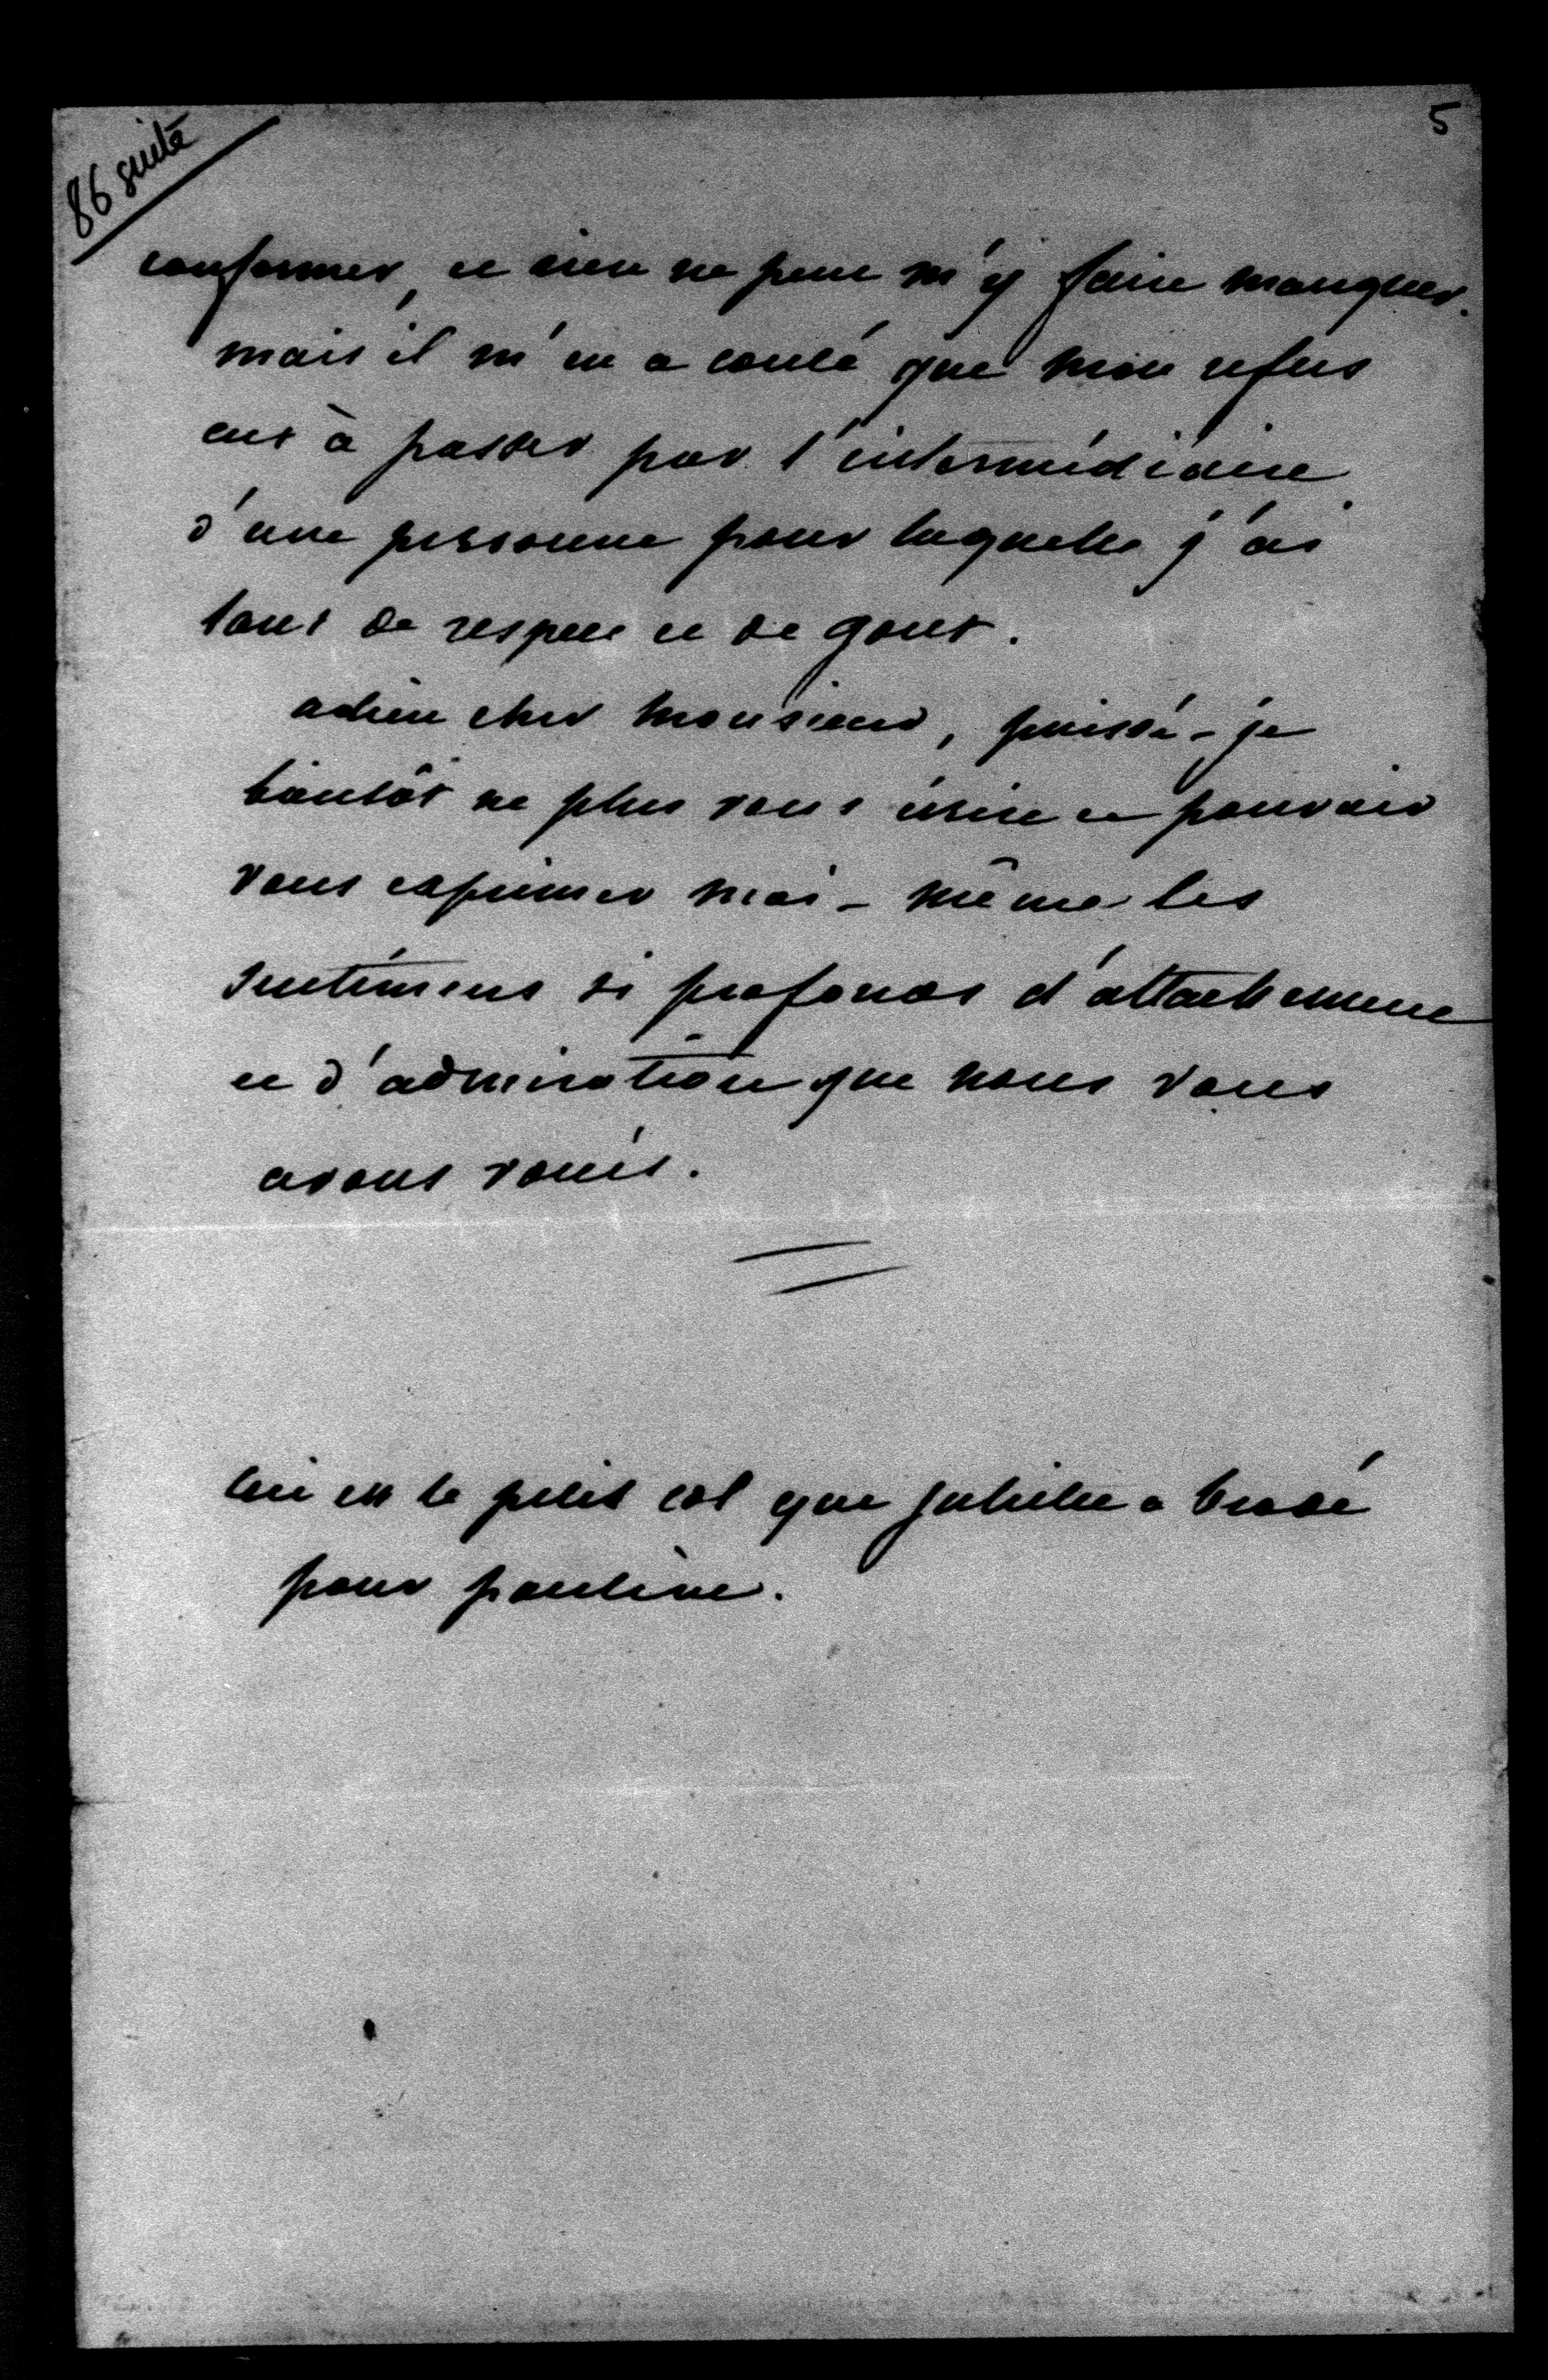 86 suite
5
conformer, et rien ne peut m'y faire manquer.
mais il m'en a couté que mon refus
eut à passer par l'intermédiaire
d'une personne pour laquelle j'ai
tant de respect et de gout.
adieu cher monsieur, puissé-je
bientôt ne plus vous écrire et pouvoir
vous exprimer moi-même les
sentimens si profonds d'attachement
et d'admiration que nous vous
avons voués.
est le petit col que juliette a brodé
pour pauline.